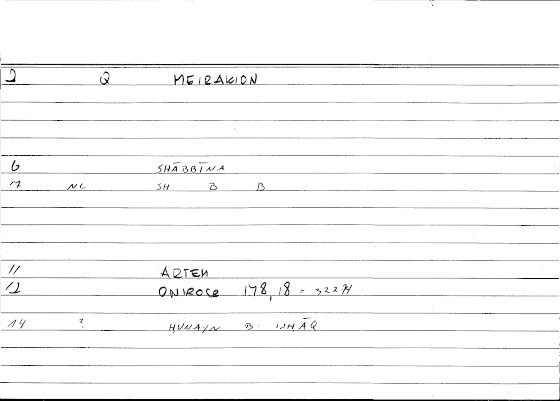 2 Q MEIRAKION
6 SHĀBBĪNA
7 NC SH B B
11 ARTEM
12 ONIROCR 178,18 = 322,4
14 ? HUNAYN B. ISHĀQ